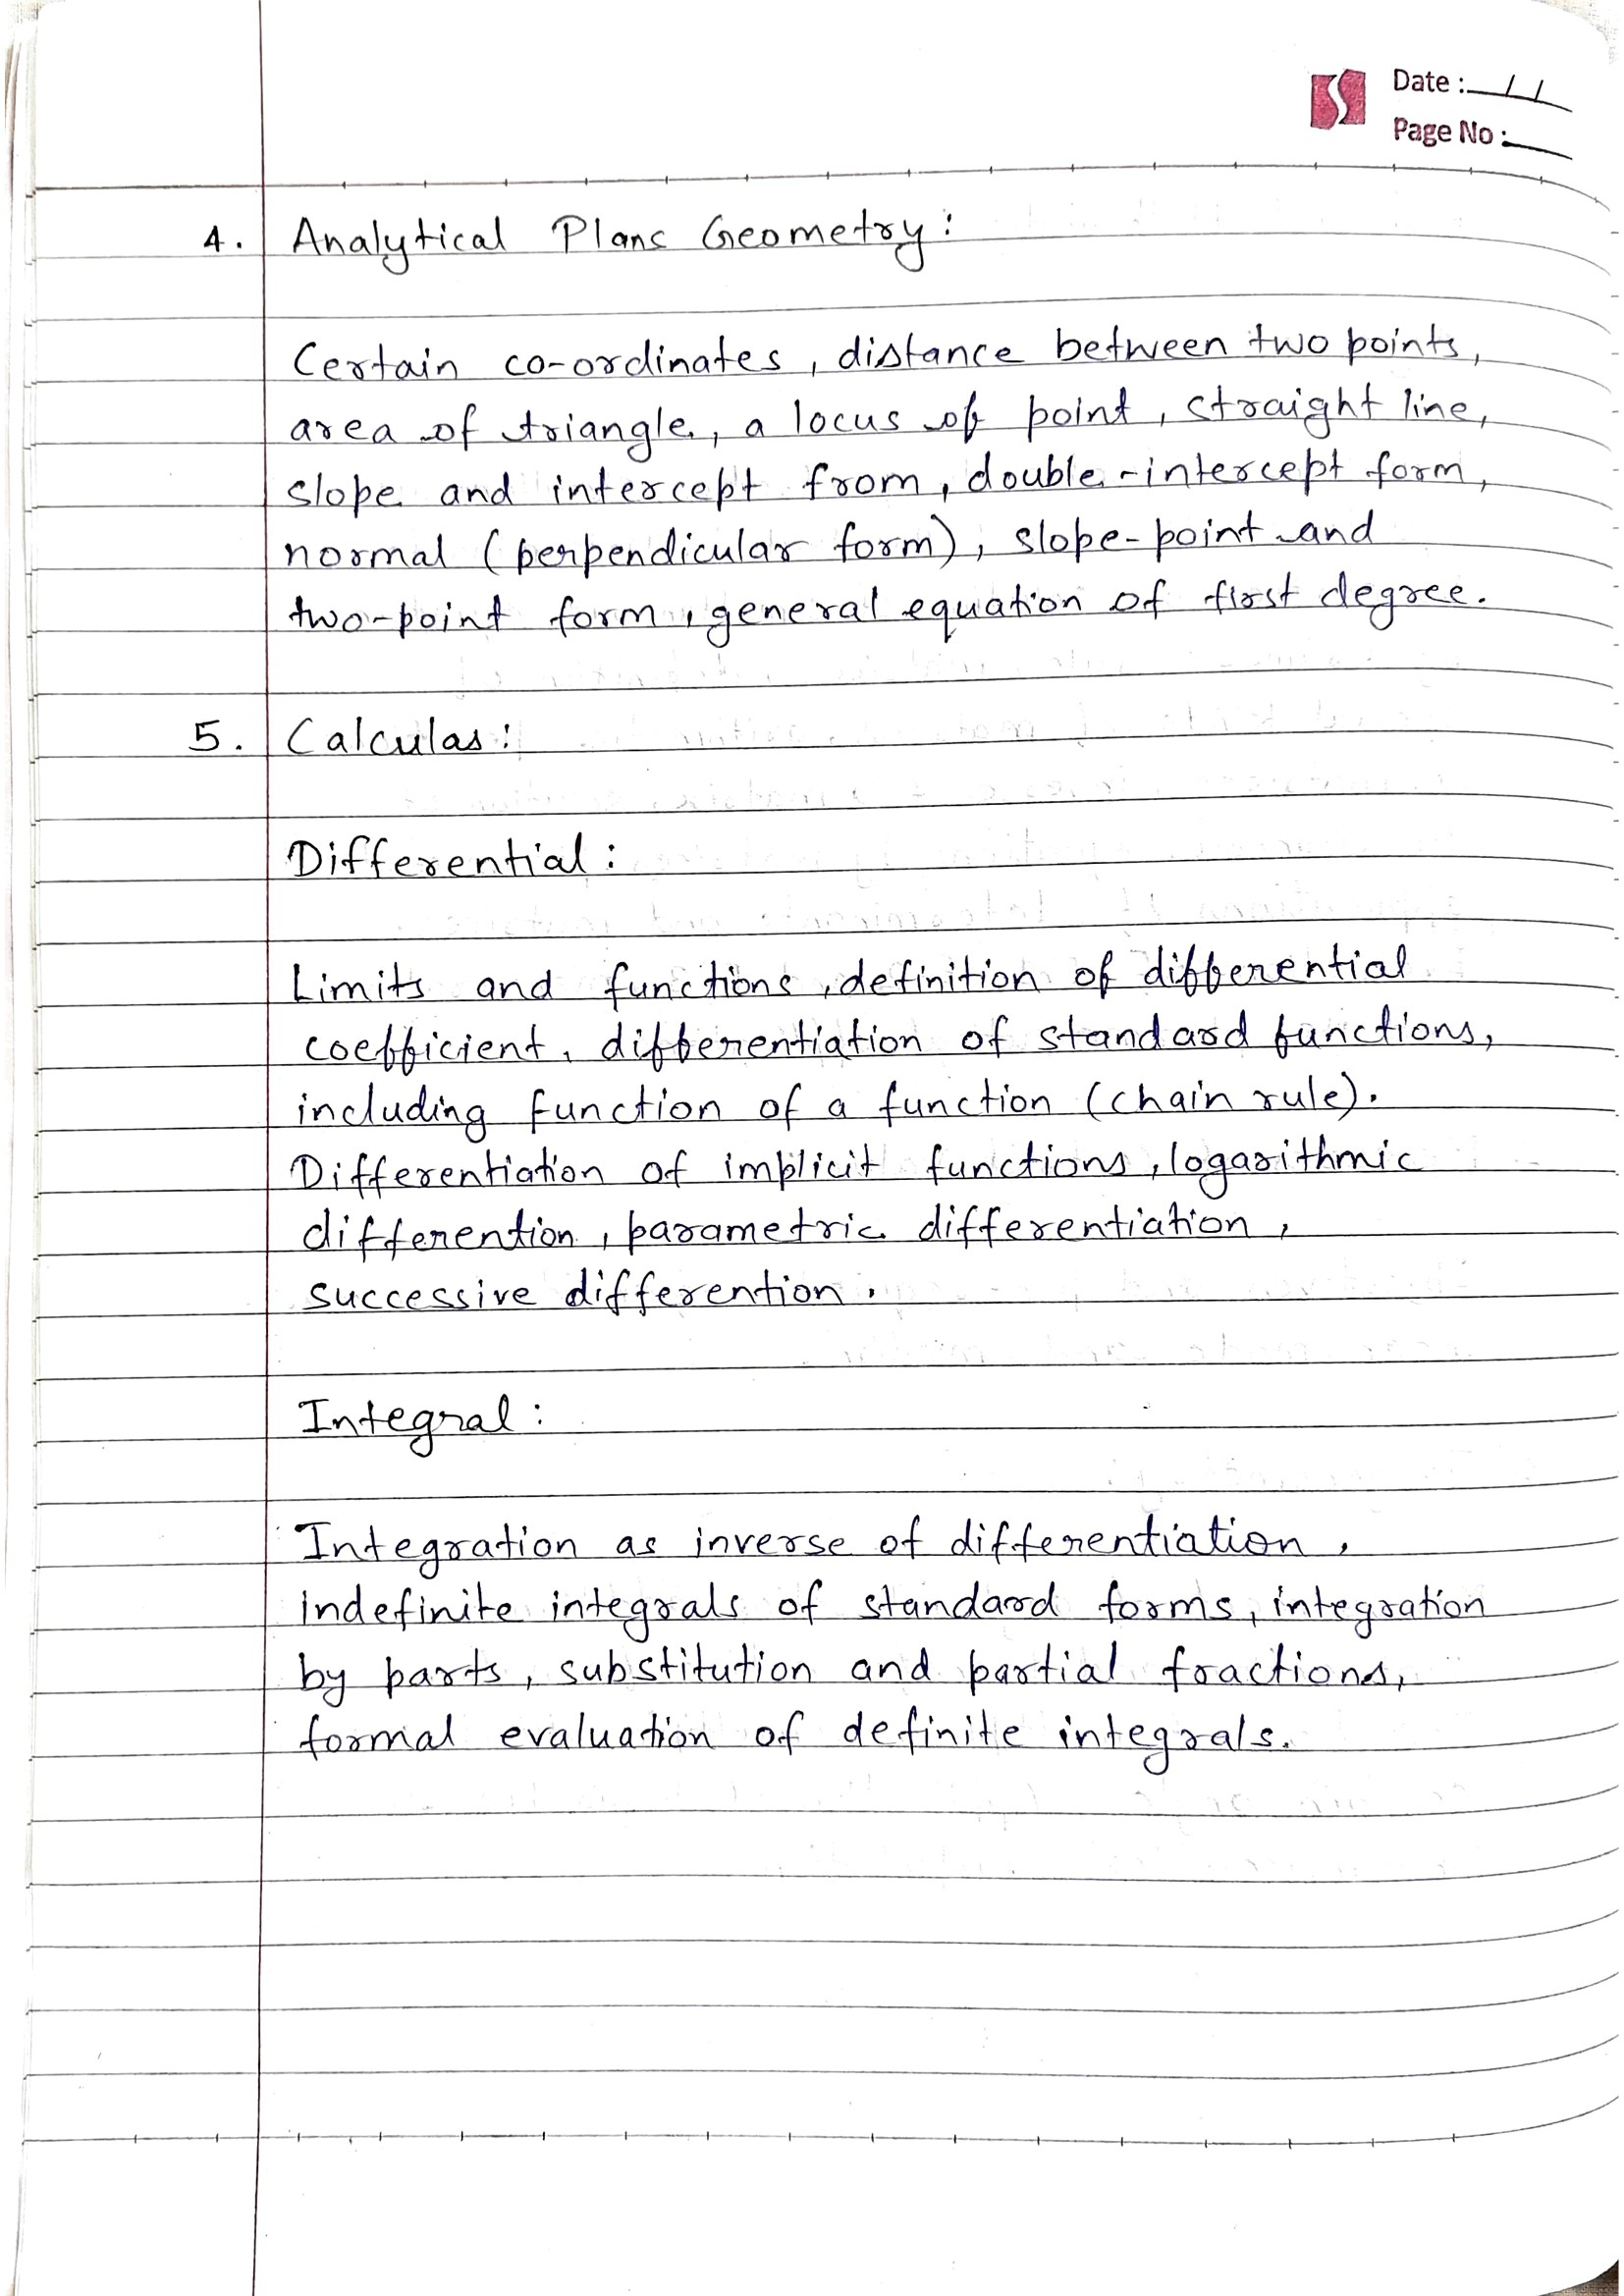 Date : / /
Page No :
4. Analytical Plans Geometry :
Certain co-ordinates, distance between two points,
area of triangle, a locus of point, straight line,
slope and intercept from, double-intercept form,
normal (perpendicular form), slope-point and
two-point form, general equation of first degree.
5. Calculas :
Differential :
Limits and functions, definition of differential
coefficient, differentiation of standard functions,
including function of a function (chain rule).
Differentiation of implicit functions, logarithmic
differention, parametric differentiation,
successive differention.
Integral :
Integration as inverse of differentiation,
indefinite integrals of standard forms, integration
by parts, substitution and partial fractions,
formal evaluation of definite integrals.